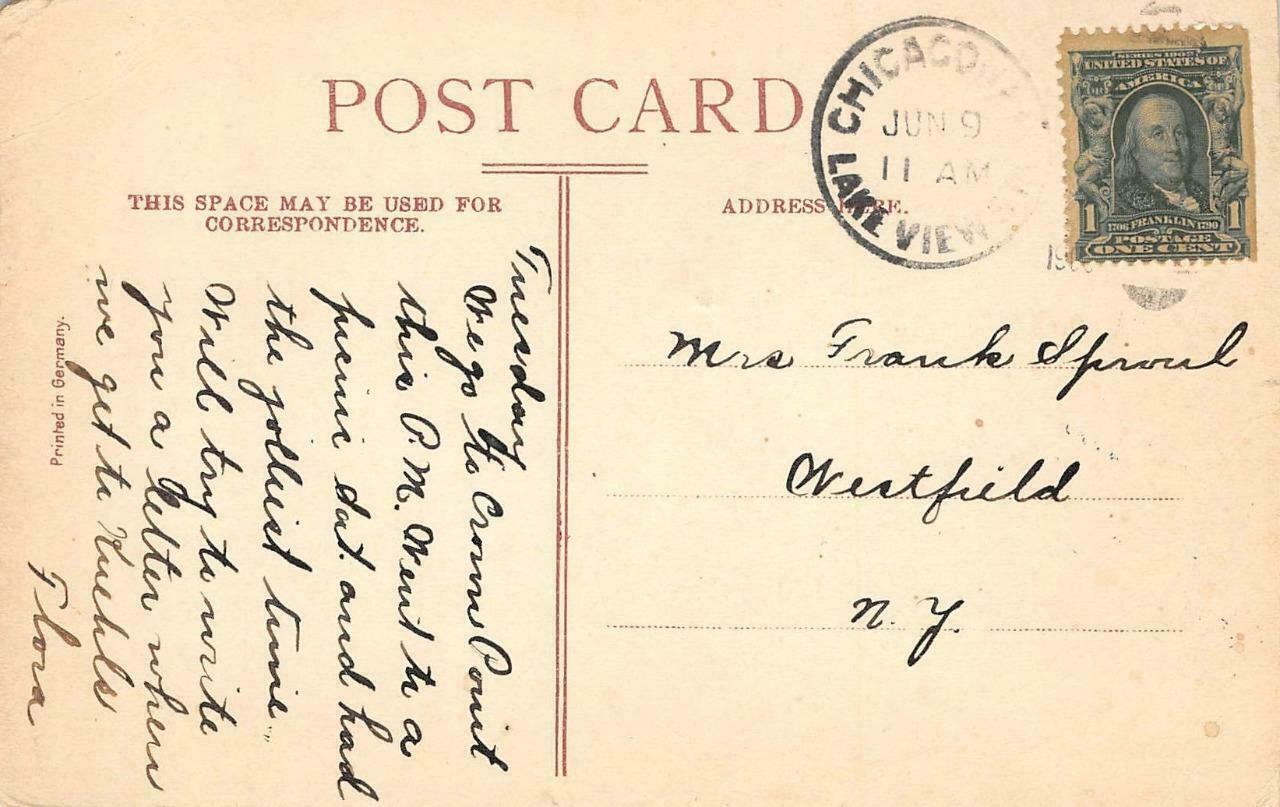 POST CARD
THIS SPACE MAY BE USED FOR
CORRESPONDENCE.
ADDRESS HERE.
CHICAGO
JUN 9
11 AM
LAKE VIEW
SERIES 1902
UNITED STATES OF
AMERICA
1 1706 FRANKLIN 1790 1
POSTAGE
ONE CENT
Tuesday
We go to Crown Point
this P.M. Went to a
picnic Sat. and had
the jolliest time.
Will try to write
you a letter when
we get to Kuehls
Flora
Mrs Frank Sproul
Westfield
N.Y.
Printed in Germany.